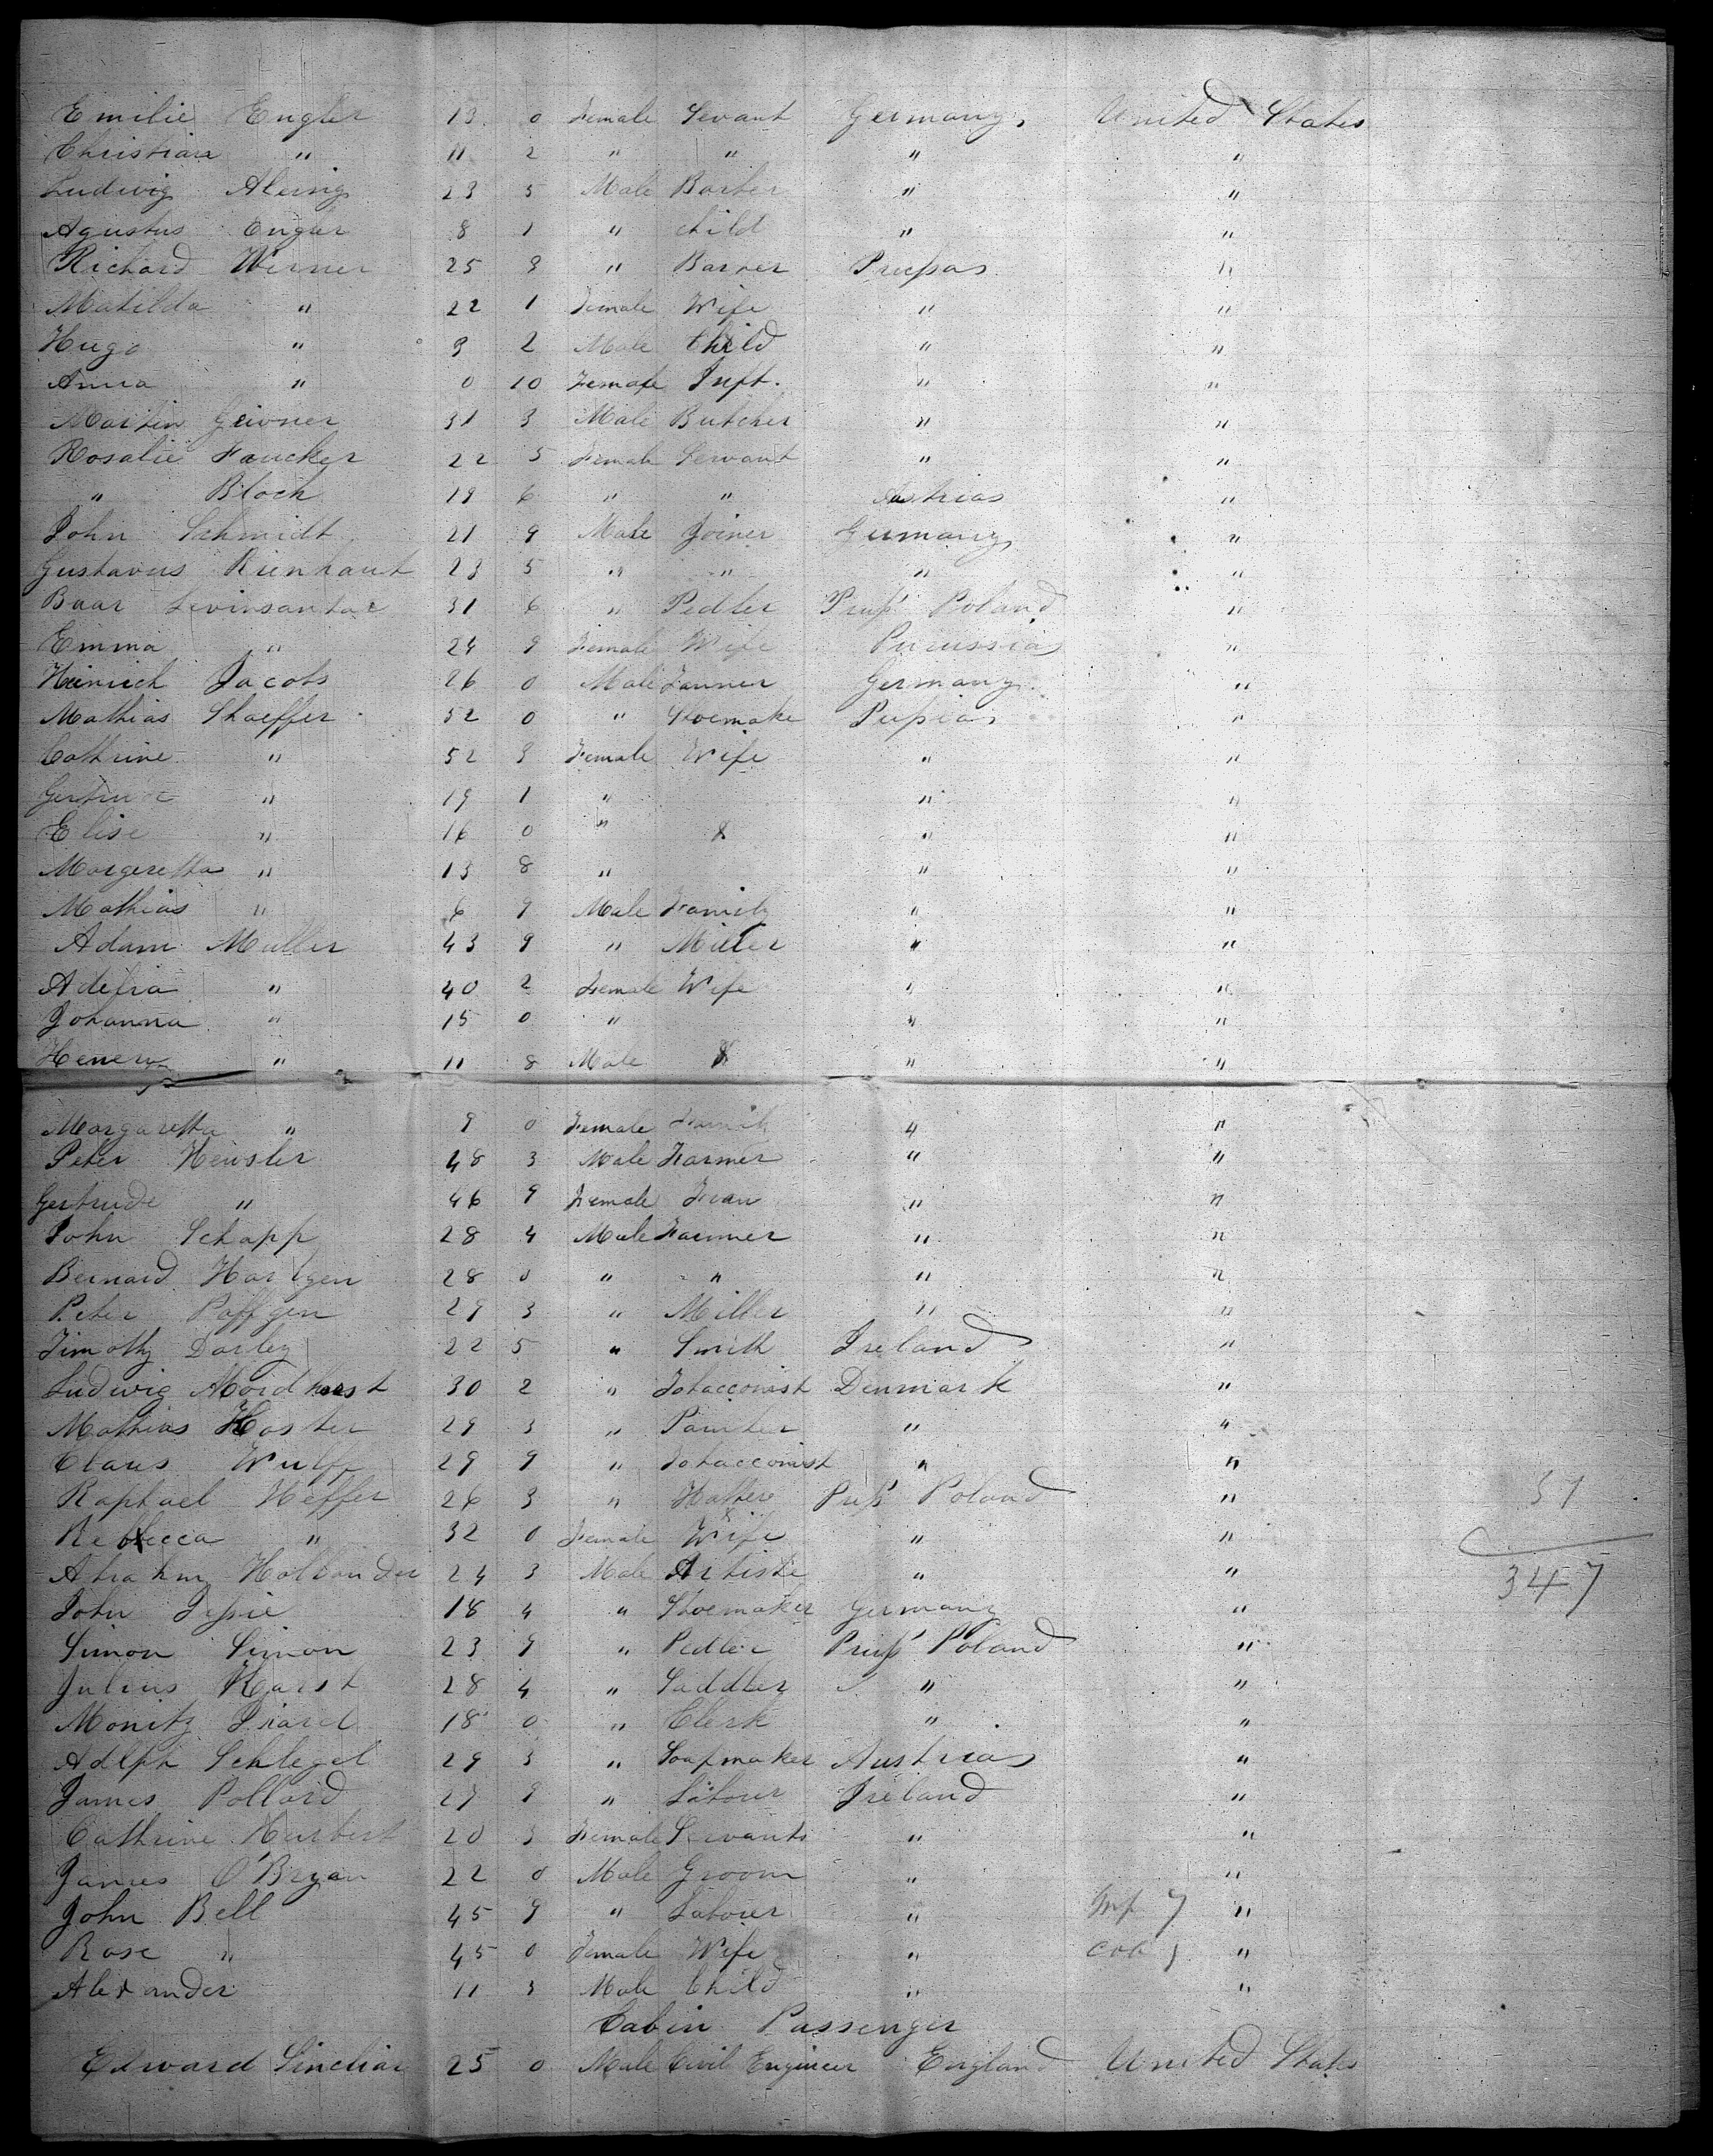 Emilie Engler 13 0 Female Sevant Germany United States
Christian " 11 2 " " " "
Ludwig 23 5 Male Barber " "
Agustus Engler 8 1 " child " "
Richard Werner 25 9 " "
Matilda " 22 1 Female Wife " "
Hugo " 3 2 Male Child " "
Anna " 0 10 Female Inft. " "
Martin 31 3 Male Butcher " "
Rosalie Faucker 22 5 Female Servant " "
" Bloch 19 6 " " "
John Schmidt 21 9 Male Joiner Germany "
Gustavus Rienhaut 23 5 " " " "
Baar 31 6 " Pedler Pruss Poland "
Emma " 24 9 Female Wife "
Heinrich Jacobs 26 0 Male Germany "
Mathias Shaeffer 52 0 " Shoemake "
Cathrine " 52 3 Female Wife " "
Gertrude " 19 1 " " "
Elise " 16 0 " " "
Margeretta " 13 8 " " "
Mathias " 6 9 Male Family " "
Adam Muller 43 9 " Miller " "
" 40 2 Female Wife " "
Johanna " 15 0 " " "
Henery " 11 8 Male " "
Margaretta " 9 0 Female Family " "
Peter Hewsler 48 3 Male Farmer " "
Gertrude " 46 9 Female Frau " "
John Schapp 28 4 Male Farmer " "
Bernard Hartgen 28 0 " " " "
Peter Paffgen 29 3 " Miller " "
Timothy Darley 22 5 " Smith Ireland "
Ludwig Moidhorst 30 2 " Tobacconist Denmark "
Mathias Hoster 29 3 " Painter " "
Claus Wulff 29 9 " Tobacconist " "
Raphael Heffer 26 3 " Poland " 51
Rebecca " 32 0 Female Wife " "
Holländer 24 3 Male Artiste " " 347
John Jessie 18 4 " Shoemaker Germany "
Simon Simon 23 9 " Pedler Pruss Poland "
Julius Karst 28 4 " Saddler " "
Monitz 18 0 " Clerk " "
Adlph Schlegel 29 3 " Soapmaker Austria "
James Pollard 27 9 " Labourer Ireland "
Cathrine Herbert 20 3 Female Servants " "
James O'Bryan 22 0 Male Groom " "
John Bell 45 9 " Labourer " Inf 7 "
Rose " 45 0 Female Wife " "
Alexander 11 3 Male Child " "
Cabin Passenger
Edward Sincliar 25 0 Male Civil Engineer England United States